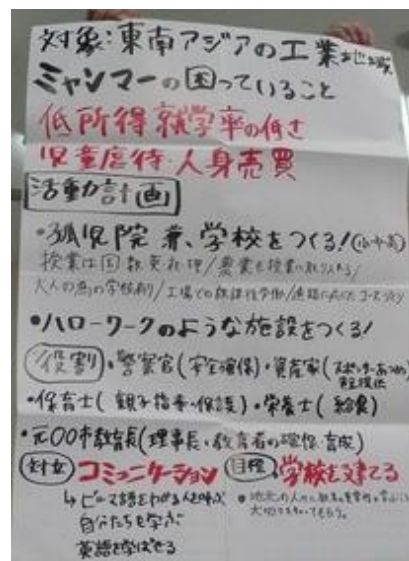 対象:東南アジアの工業地域
ミャンマーの困っていること
低所得 就学率の低さ
児童虐待・人身売買
活動計画
・孤児院 兼、学校をつくる!(小中高)
授業は国数英社理/農業も授業に取り入れる/
大人の為の学校有り/工場での放課後労働/進路に応じたコース
・ハローワークのような施設をつくる!
役割 ・警察官(安全確保)・資産家(スポンサーあつめ 資金提供
・保育士(親子指導・保護)・栄養士(給食)
・元〇〇市教育長(理事長・教育者の確保・育成)
対立 コミュニケーション 目標 学校を建てる
↳ビルマ語をわかる人を呼ぶ
自分たちも学ぶ
英語を学ばせる
・地元の人々に教育の重要性を学び
大切
もらう。